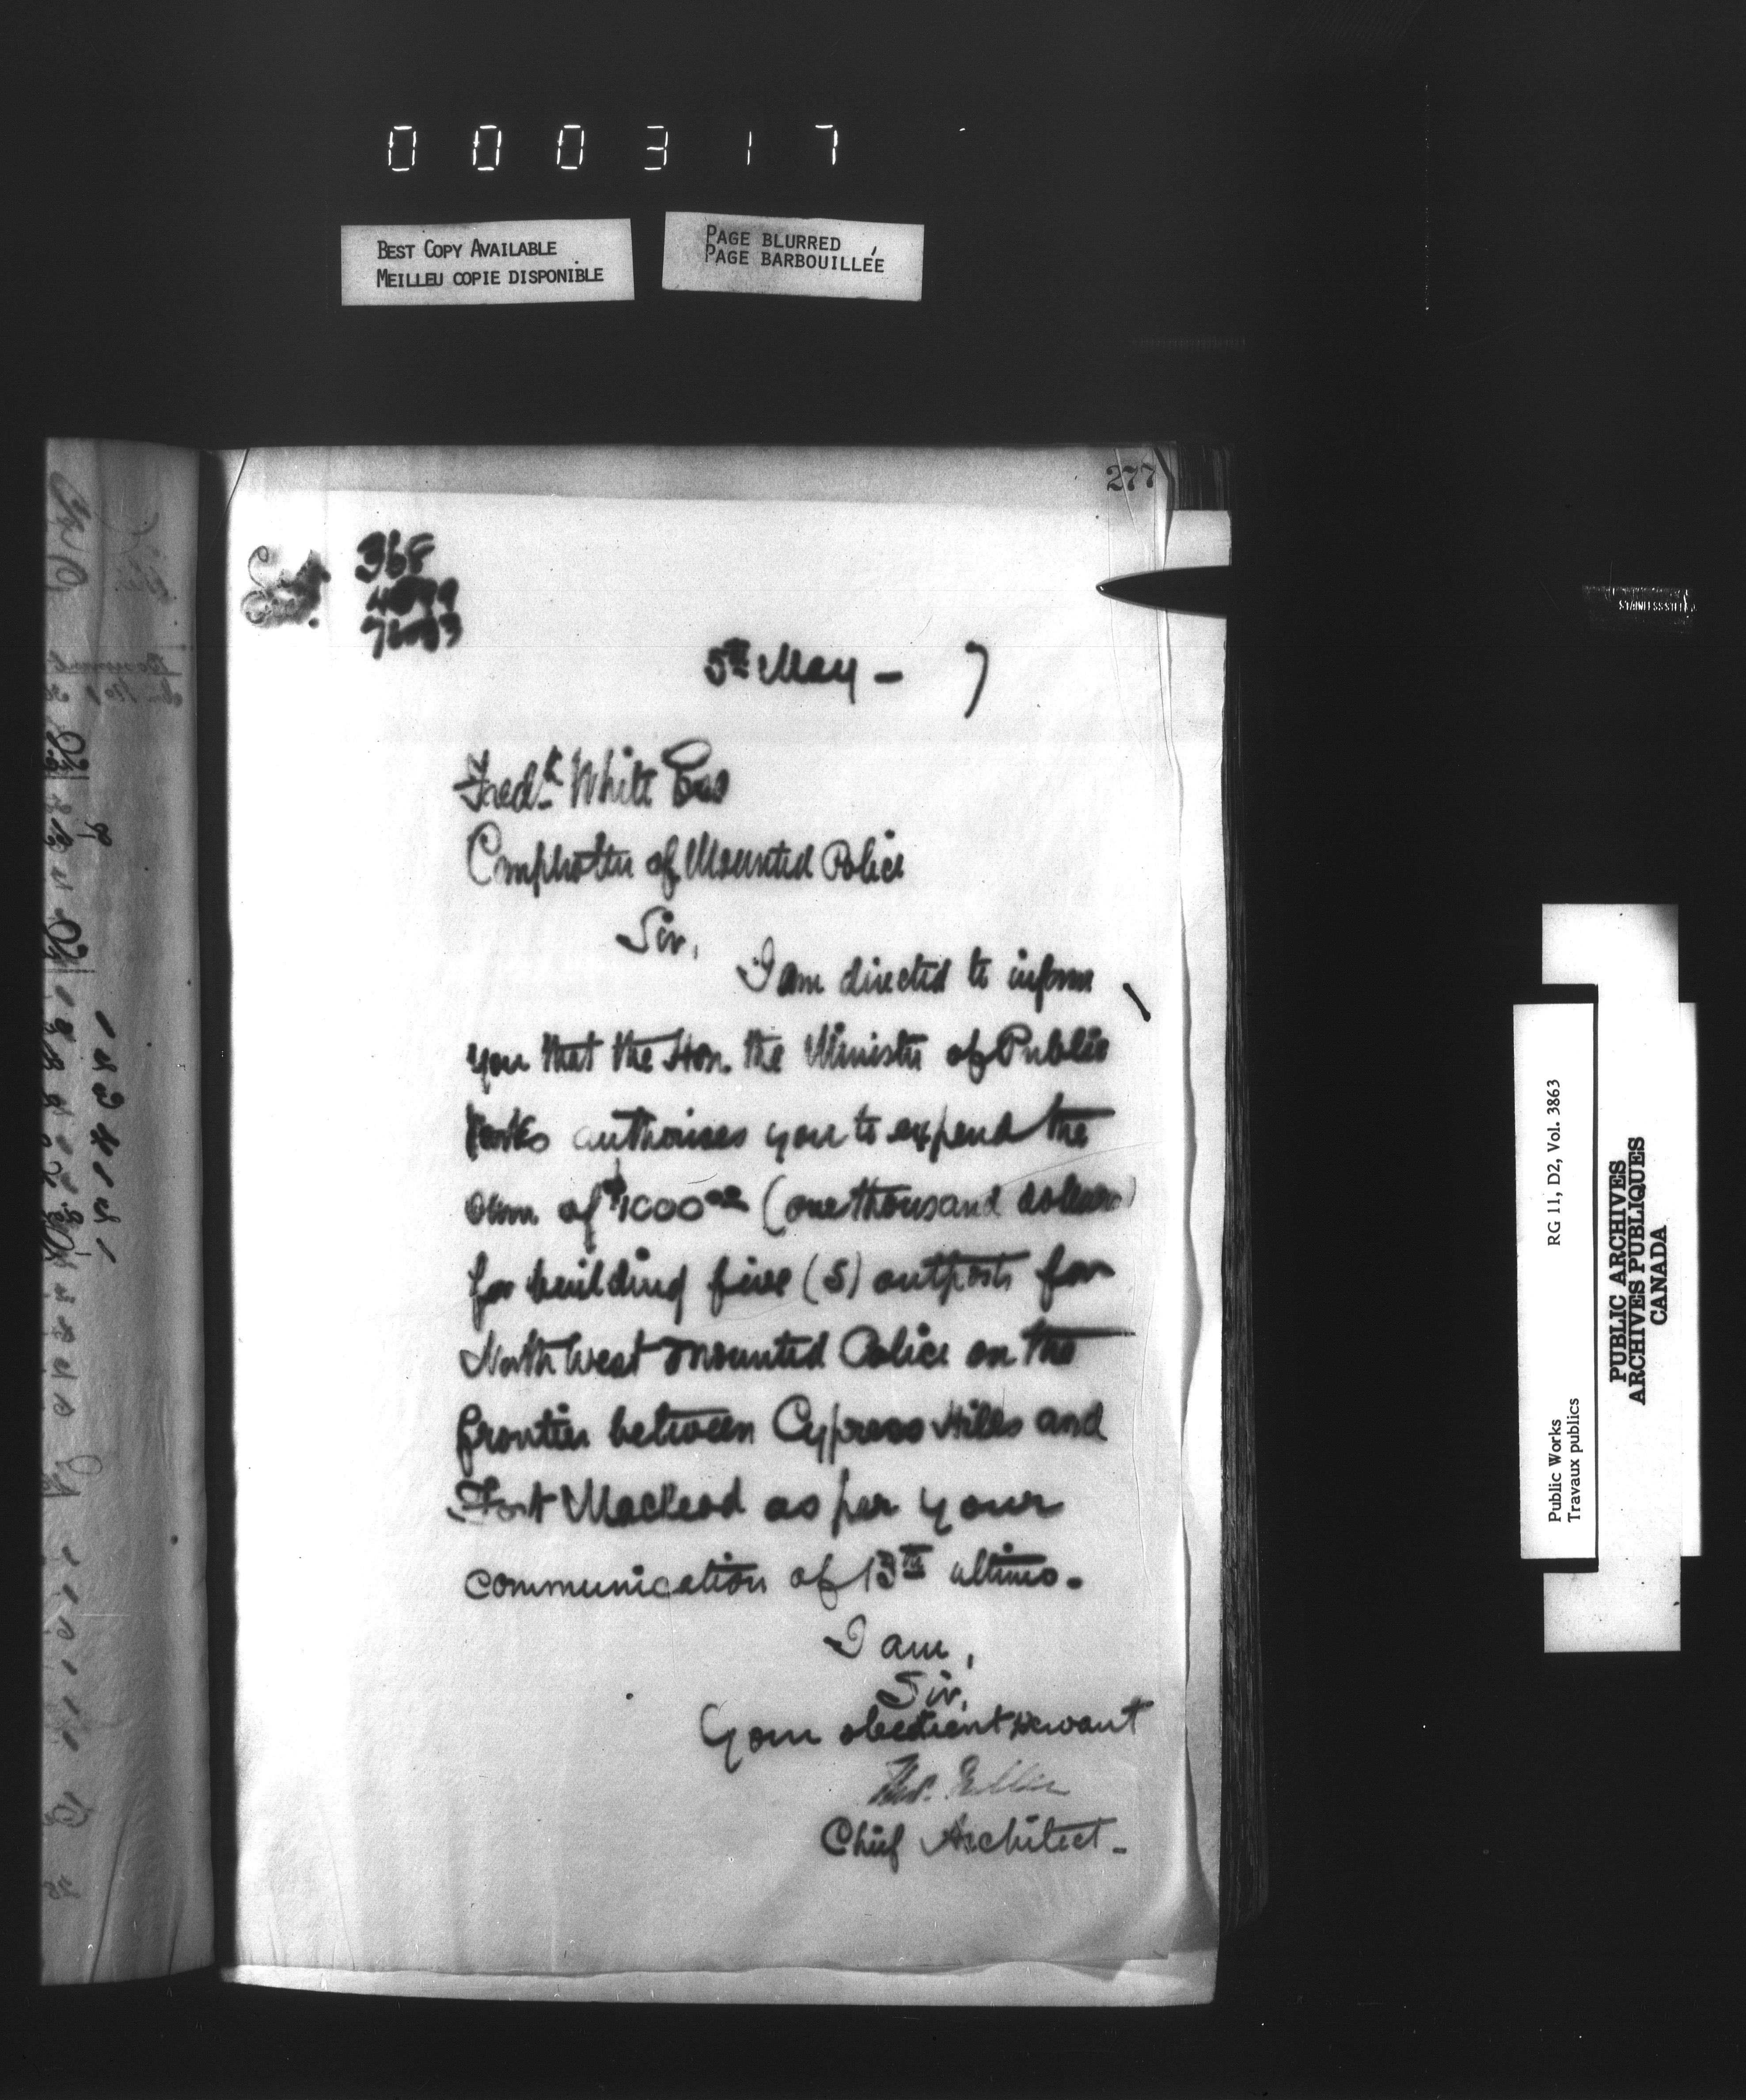 000317
BEST COPY AVAILABLE
MEILLEU COPIE DISPONIBLE
PAGE BLURRED
PAGE BARBOUILLÉE
277
368
5th May - 7
Fredk White Esq
Comptroller of Mounted Police
Sir,
I am directed to inform
you that the Hon. the Minister of Public
Works authorises you to expend the
sum of $1000 00 (one thousand dollars)
for building five (5) outposts for
North West Mounted Police on the
frontier between Cypress Hills and
Fort Macleod as per your
communication of 13th ultimo.
I am,
Sir,
Your obedient servant
Thos. Fuller
Chief Architect -
STAINLESS STEEL
Public Works RG 11, D2, Vol. 3863
Travaux publics
PUBLIC ARCHIVES
ARCHIVES PUBLIQUES
CANADA